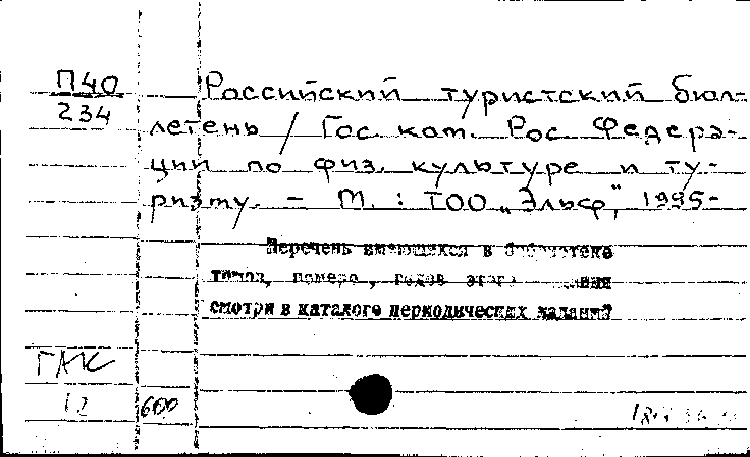 П40
234
Российский туристский бюл-
летень / Гос. ком. Рос. Федера-
ции по физ. культуре и ту-
ризму. - М. : ТОО „Эльф", 1995-
Перечень имеющихся в библиотеке
томов, номеров, годов этого издания
смотри в каталоге периодических изданий
ГАК
12 600